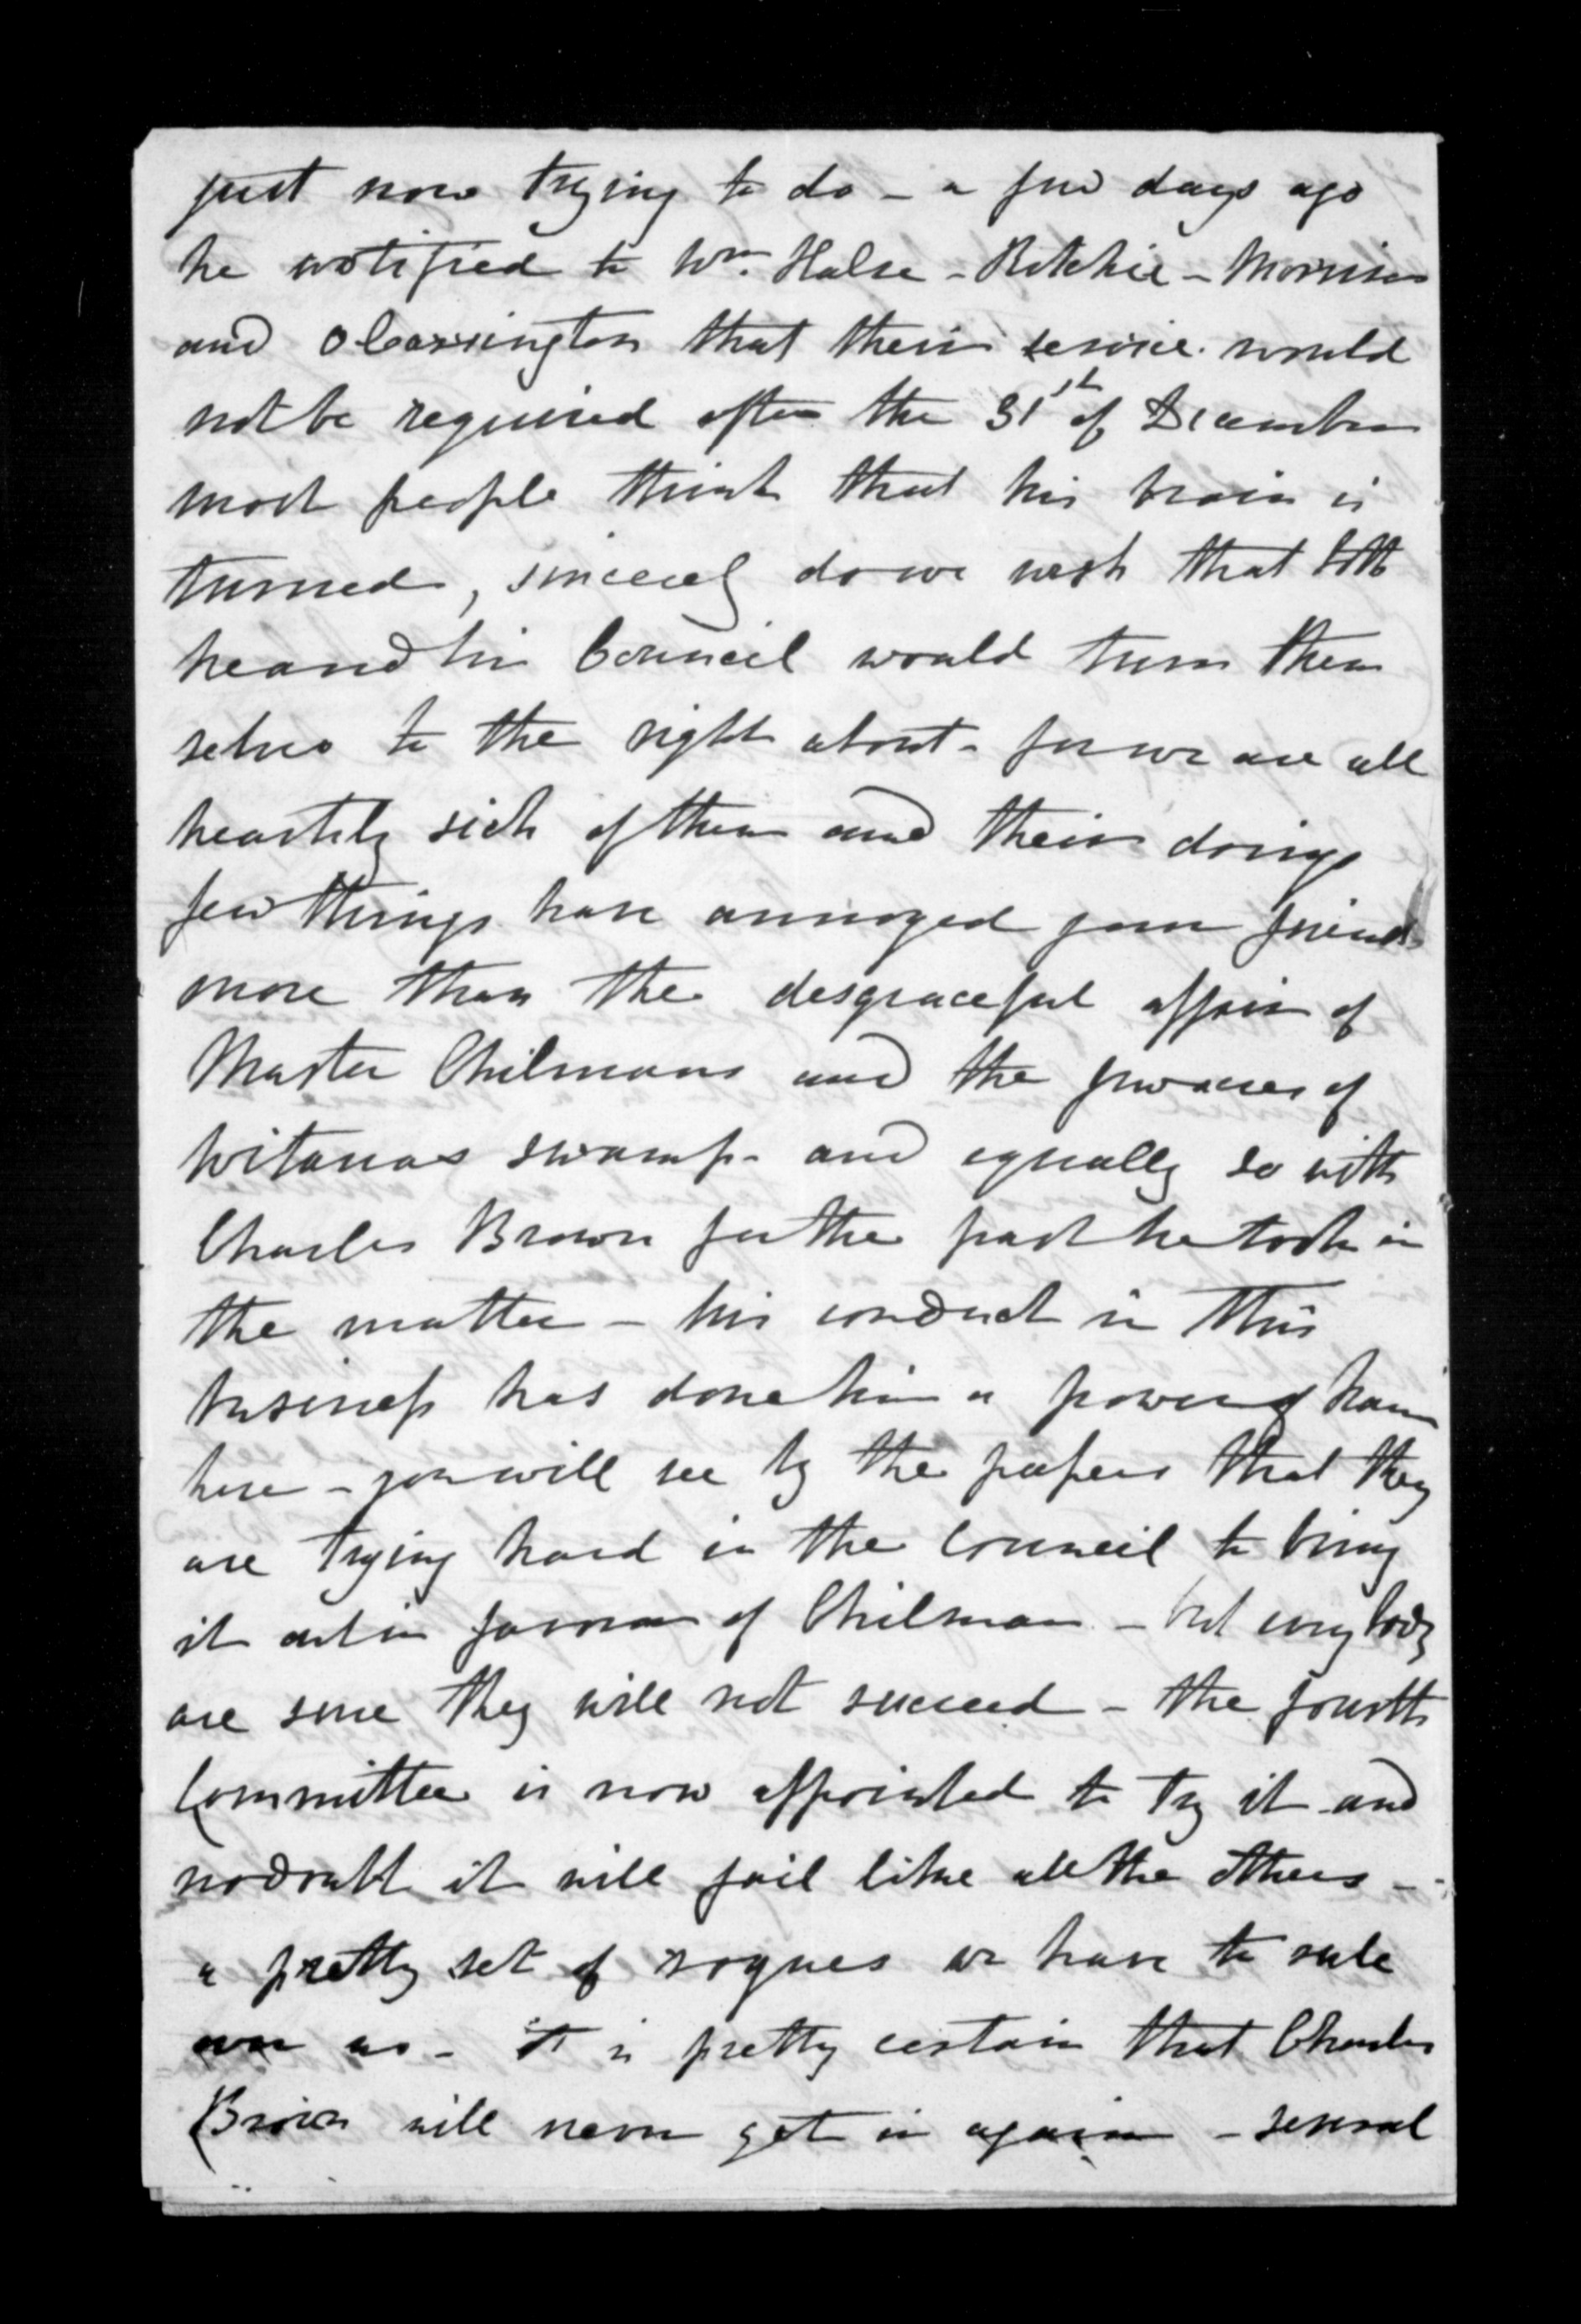 just now trying to do - a few days ago
he notified to Wm. Halse - Ritchie - Morrison
and O Carrington that their service would
not be required after the 31st of December
most people think that his brain is
turned, sincerely do we wish that both
he and his Council would turn them
selves to the right about - for we are all
heartily sick of them and their doings
few things have annoyed your friends
more than the desgraceful affair of
Master Chilmans and the few acres of
Witanas swamp - and equally so with
Charles Brown for the part he took in
the matter - his conduct in this
business has done him a power of harm
here - you will see by the papers that they
are trying hard in the Council to bring
it out in favour of Chilman - but every body
are sure they will not succeed - the fourth
Committee is now appointed to try it and
no doubt it will fail like all the others -
a pretty set of rogues we have to rule
over us - it is pretty certain that Charles
Brown will never get in again - several